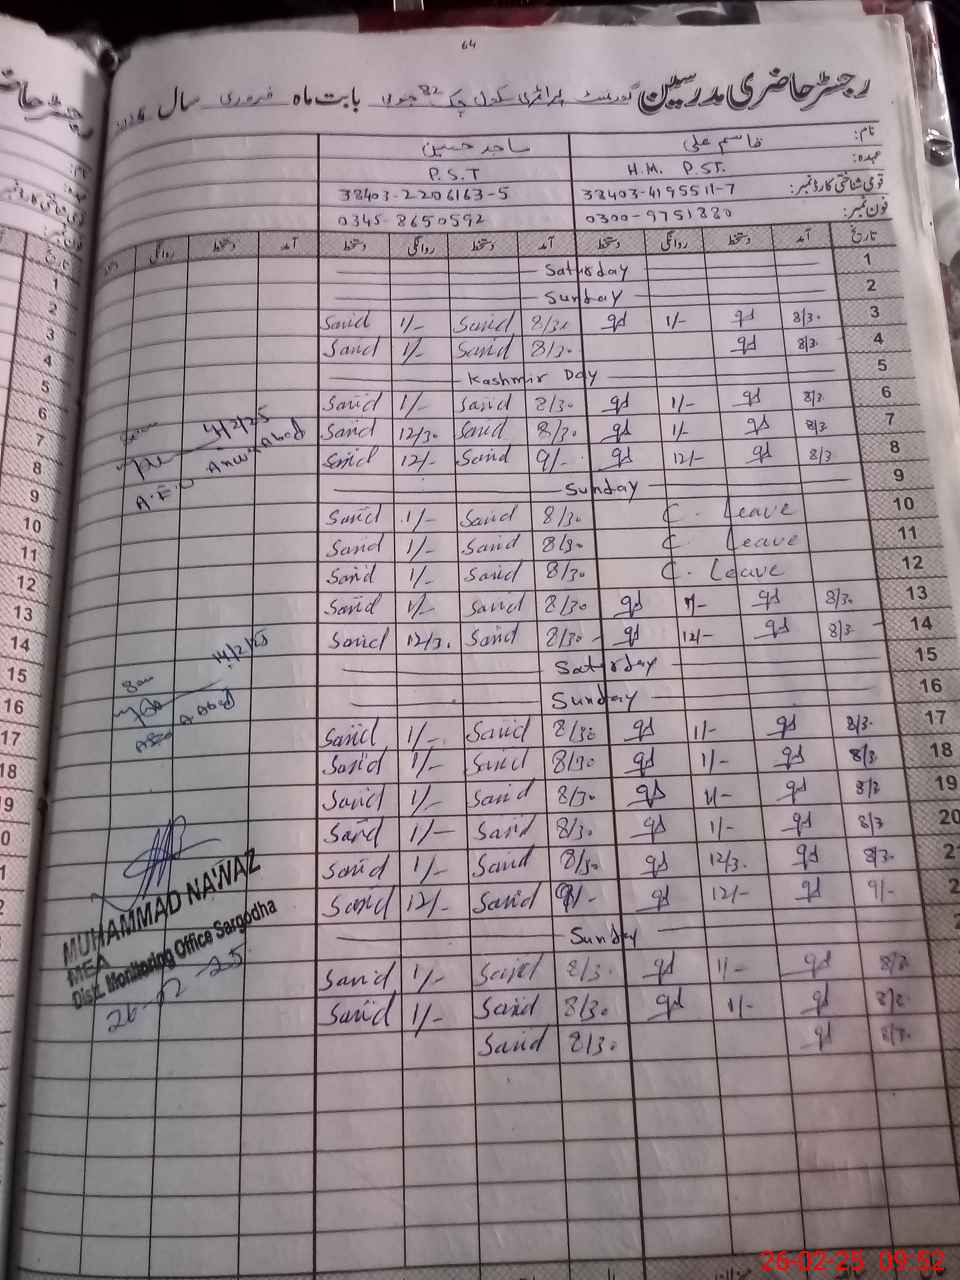 64
رجسٹر حاضری مدرسین گورنمنٹ پرائمری سکول چک 82 جنوبی بابت ماہ فروری سال
نام: قاسم علی ساجد حسین
عہدہ: H.M. P.S.T. P.S.T
قومی شناختی کارڈ نمبر: 38403-4195511-7 38403-2206163-5
فون نمبر: 0300-9751880 0345-8650592
تاریخ آمد دستخط روانگی دستخط آمد دستخط روانگی دستخط آمد دستخط روانگی دستخط
1 Saturday
2 Sunday
3 8/30 qd 1/- qd 8/30 Sajid 1/- Sajid
4 8/30 qd 8/30 Sajid 1/- Sajid
5 Kashmir Day
6 8/30 qd 1/- qd 8/30 Sajid 1/- Sajid
7 8/30 qd 1/- qd 8/30 Sajid 12/30 Sajid
8 8/3 qd 12/- qd 9/- Sajid 12/- Sajid
9 Sunday
10 C. Leave 8/30 Sajid 1/- Sajid
11 C. Leave 8/30 Sajid 1/- Sajid
12 C. Leave 8/30 Sajid 1/- Sajid
13 8/30 qd 1/- qd 8/30 Sajid 1/- Sajid
14 8/30 qd 12/- qd 8/30 Sajid 12/30 Sajid
15 Saturday
16 Sunday
17 8/30 qd 1/- qd 8/30 Sajid 1/- Sajid
18 8/30 qd 1/- qd 8/30 Sajid 1/- Sajid
19 8/30 qd 1/- qd 8/30 Sajid 1/- Sajid
20 8/30 qd 1/- qd 8/30 Sajid 1/- Sajid
2 8/30 qd 12/30 qd 8/30 Sajid 1/- Sajid
2 9/- qd 12/- qd 9/- Sajid 12/- Sajid
2 Sunday
8/30 qd 1/- qd 8/30 Sajid 1/- Sajid
8/30 qd 1/- qd 8/30 Sajid 1/- Sajid
8/30 qd 8/30 Sajid
4/2/25
A.E.O Anwar Abad
14/2/25
AEO A Abad
MUHAMMAD NAWAZ
MEA
Distt. Monitoring Office Sargodha
26-02-25
26-02-25 09:52